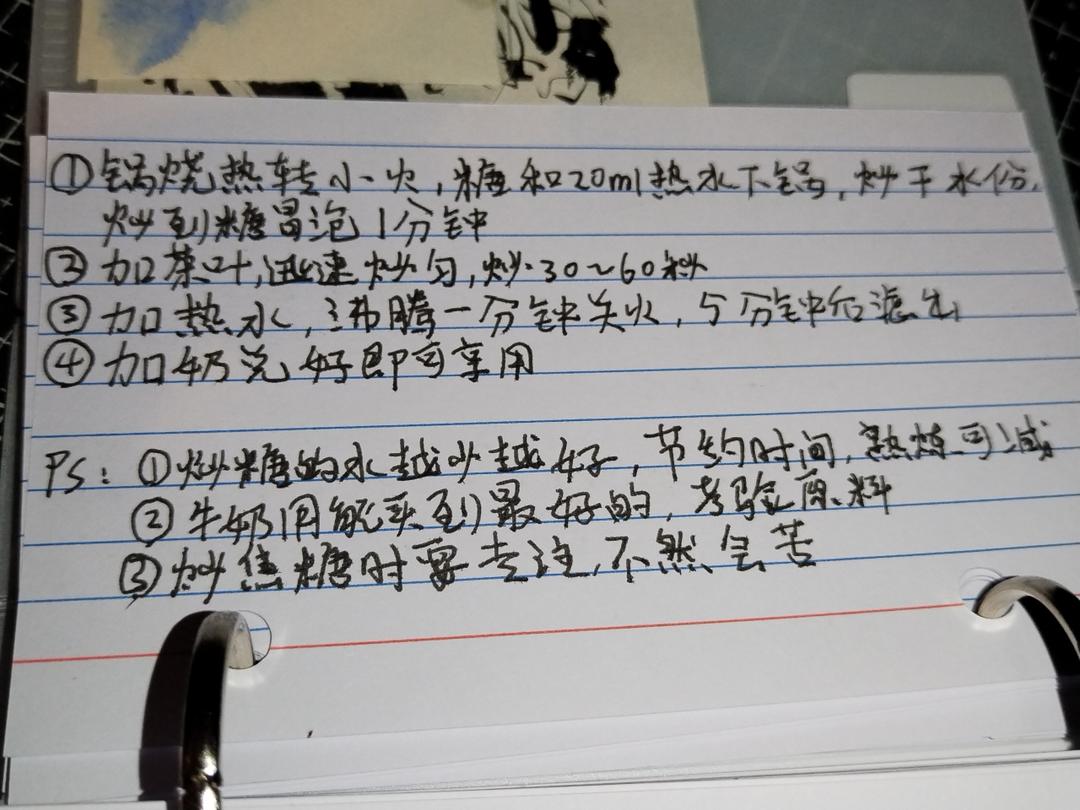 ①锅烧热转小火，糖和20ml热水下锅，炒干水份，
炒到糖冒泡1分钟
②加茶叶，迅速炒匀，炒30~60秒
③加热水，沸腾一分钟关火，5分钟后滤出
④加奶兑好即可享用
PS：①炒糖的水越少越好，节约时间，熟练可减
②牛奶用能买到最好的，考验原料
③炒焦糖时要专注，不然会苦